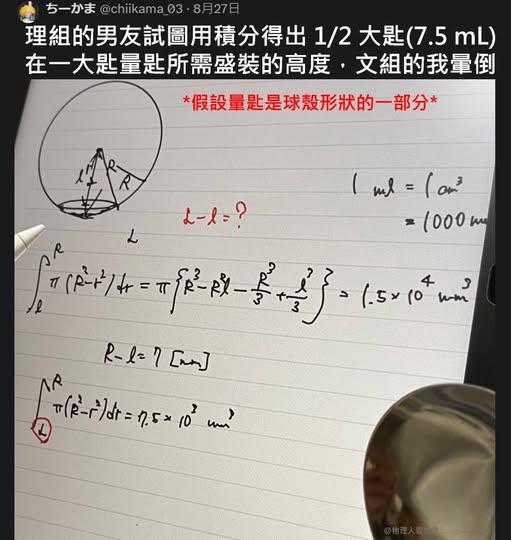 ちーかま @chiikama_03・8月27日
理組的男友試圖用積分得出 1/2 大匙(7.5 mL)
在一大匙量匙所需盛裝的高度，文組的我暈倒
*假設量匙是球殼形狀的一部分*
R
R
l
L
1 ml = 1 cm³
= 1000 mm
L-l=?
∫_l^R π(R²-r²)dr = π{R³-R²l-R³/3+l³/3} = 1.5×10⁴ mm³
R-l=7 [mm]
∫_L^R π(R²-r²)dr=7.5×10³ mm³